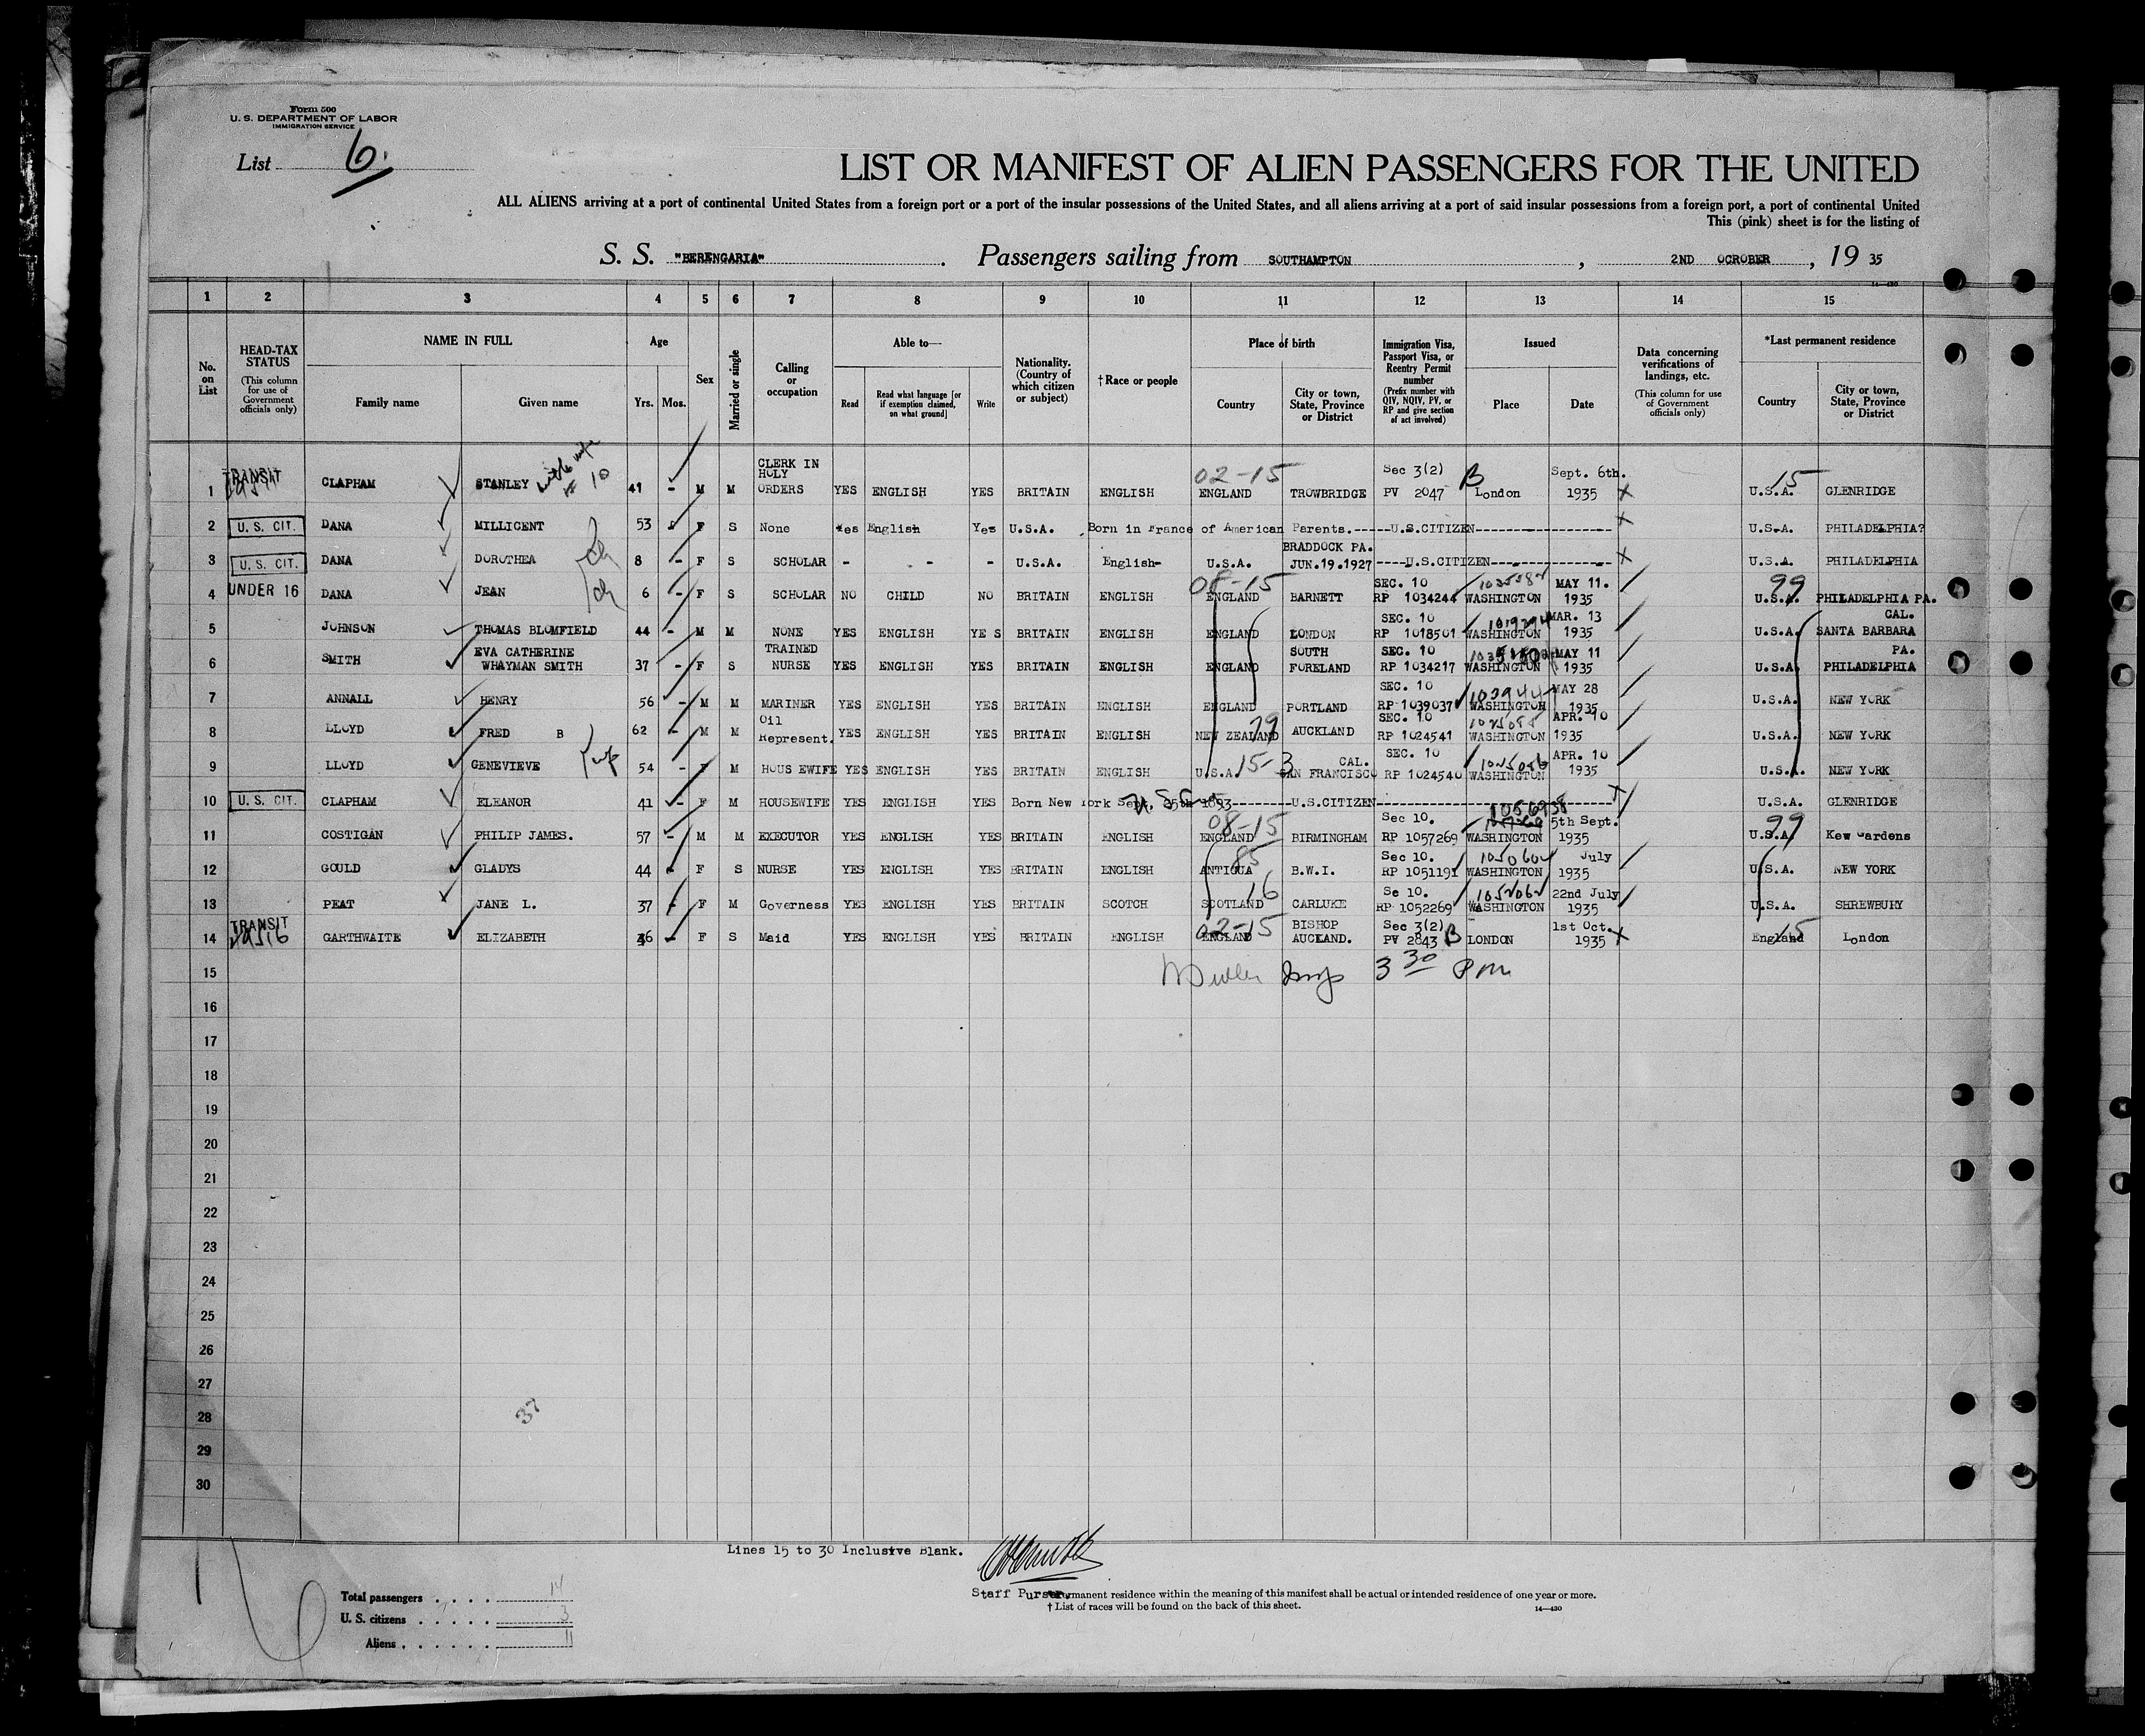 Form 500
U. S. DEPARTMENT OF LABOR
IMMIGRATION SERVICE
List 6.
LIST OR MANIFEST OF ALIEN PASSENGERS FOR THE UNITED
ALL ALIENS arriving at a port of continental United States from a foreign port or a port of the insular possessions of the United States, and all aliens arriving at a port of said insular possessions from a foreign port, a port of continental United
This (pink) sheet is for the listing of
S. S. "BERENGARIA". Passengers sailing from SOUTHAMPTON, 2ND OCROBER, 19 35
14—430
1 2 3 4 5 6 7 8 9 10 11 12 13 14 15
No. on List
HEAD-TAX STATUS (This column for use of Government officials only)
NAME IN FULL Family name Given name
Age Yrs. Mos.
Sex
Married or single
Calling or occupation
Able to— Read Read what language [or if exemption claimed, on what ground] Write
Nationality. (Country of which citizen or subject)
†Race or people
Place of birth Country City or town, State, Province or District
Immigration Visa, Passport Visa, or Reentry Permit number (Prefix number with QIV, NQIV, PV, or RP and give section of act involved)
Issued Place Date
Data concerning verifications of landings, etc. (This column for use of Government officials only)
*Last permanent residence Country City or town, State, Province or District
1 TRANSIT CLAPHAM STANLEY with wife # 10 41 - M M CLERK IN HOLY ORDERS YES ENGLISH YES BRITAIN ENGLISH 02-15 ENGLAND TROWBRIDGE Sec 3(2) PV 2047 B London Sept. 6th. 1935 X 15 U.S.A. GLENRIDGE
2 U. S. CIT. DANA MILLICENT 53 - F S None Yes English Yes U.S.A. Born in France of American Parents.-----U.S.CITIZEN--------------- X U.S.A. PHILADELPHIA?
3 U. S. CIT. DANA DOROTHEA ch 8 - F S SCHOLAR - - - U.S.A. English- U.S.A. BRADDOCK PA. JUN.19.1927 ----U.S.CITIZEN--------------- X U.S.A. PHILADELPHIA
4 UNDER 16 DANA JEAN ch 6 - F S SCHOLAR NO CHILD NO BRITAIN ENGLISH 08-15 ENGLAND BARNETT SEC. 10 RP 1034244 WASHINGTON MAY 11. 1935 99 U.S.A. PHILADELPHIA PA.
5 JOHNSON THOMAS BLOMFIELD 44 - M M NONE YES ENGLISH YE S BRITAIN ENGLISH ENGLAND LONDON SEC. 10 RP 1018501 WASHINGTON MAR. 13 1935 U.S.A. CAL. SANTA BARBARA
6 SMITH EVA CATHERINE WHAYMAN SMITH 37 - F S TRAINED NURSE YES ENGLISH YES BRITAIN ENGLISH ENGLAND SOUTH FORELAND SEC. 10 RP 1034217 WASHINGTON MAY 11 1935 U.S.A. PA. PHILADELPHIA
7 ANNALL HENRY 56 - M M MARINER YES ENGLISH YES BRITAIN ENGLISH ENGLAND PORTLAND SEC. 10 RP 1039037 WASHINGTON MAY 28 1935 U.S.A. NEW YORK
8 LLOYD FRED B 62 - M M Oil Represent. YES ENGLISH YES BRITAIN ENGLISH 79 NEW ZEALAND AUCKLAND SEC. 10 RP 1024541 WASHINGTON APR. 10 1935 U.S.A. NEW YORK
9 LLOYD GENEVIEVE wf 54 - F M HOUS EWIFE YES ENGLISH YES BRITAIN ENGLISH U.S.A. 15-3 CAL. SAN FRANCISCO SEC. 10 RP 1024540 WASHINGTON APR. 10 1935 U.S.A. NEW YORK
10 U. S. CIT. CLAPHAM ELEANOR 41 - F M HOUSEWIFE YES ENGLISH YES Born New York Sept. 25th 1893---------U.S.CITIZEN--------------- X U.S.A. GLENRIDGE
11 COSTIGAN PHILIP JAMES. 57 - M M EXECUTOR YES ENGLISH YES BRITAIN ENGLISH 08-15 ENGLAND BIRMINGHAM Sec 10. RP 1057269 1056938 WASHINGTON 5th Sept. 1935 99 U.S.A. Kew Gardens
12 GOULD GLADYS 44 F S NURSE YES ENGLISH YES BRITAIN ENGLISH 85 ANTIGUA B.W.I. Sec 10. RP 1051191 WASHINGTON July 1935 U.S.A. NEW YORK
13 PEAT JANE L. 37 - F M Governess YES ENGLISH YES BRITAIN SCOTCH 16 SCOTLAND CARLUKE Se 10. RP 1052269 WASHINGTON 22nd July 1935 U.S.A. SHREWBURY
14 TRANSIT GARTHWAITE ELIZABETH 36 - F S Maid YES ENGLISH YES BRITAIN ENGLISH 02-15 ENGLAND BISHOP AUCKLAND. Sec 3(2) PV 2843 B LONDON 1st Oct. 1935 X 15 England London
15 3 30 Pm
16
17
18
19
20
21
22
23
24
25
26
27
28 37
29
30
Lines 15 to 30 Inclusive Blank.
Staff Purser.
Total passengers . . . . 14
U. S. citizens . . . . . 3
Aliens . . . . . . 11
permanent residence within the meaning of this manifest shall be actual or intended residence of one year or more.
† List of races will be found on the back of this sheet.
14—430